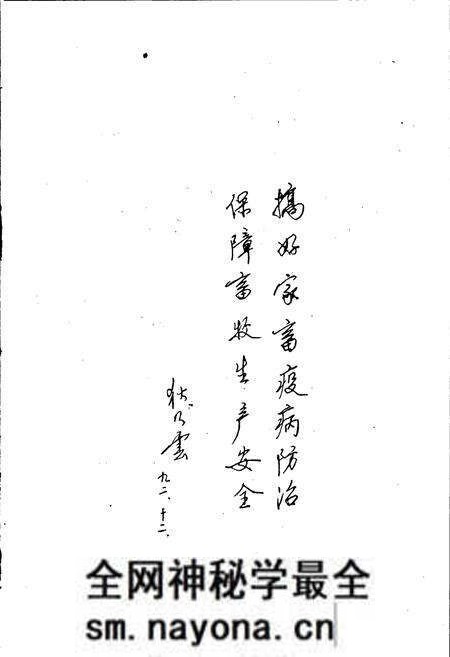 搞好家畜疫病防治
保障畜牧生产安全
狄乃云
九二、十二、
全网神秘学最全
sm.nayona.cn